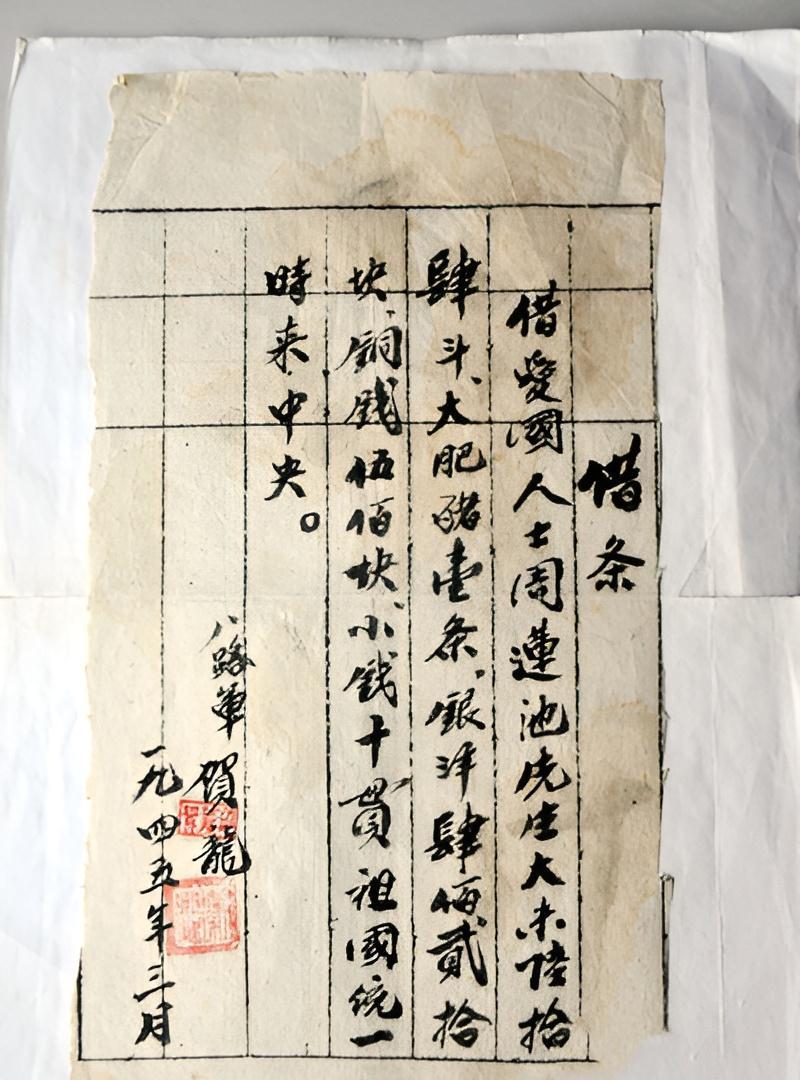 借条
借愛國人士周蓮池先生大米陸拾
肆斗、大肥豬壹条、銀洋肆佰貳拾
块、銅錢伍佰块、小錢十貫祖國統一
時来中央。
八路軍 賀龍
一九四五年三月